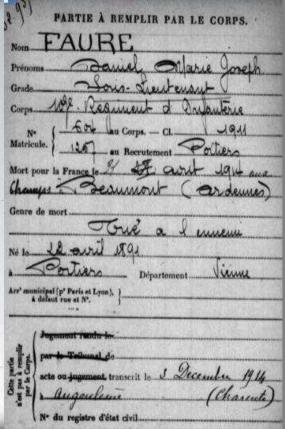 PARTIE À REMPLIR PAR LE CORPS.
Nom FAURE
Prénoms Daniel Marie Joseph
Grade Sous-Lieutenant
Corps Régiment d'Infanterie
N° au Corps. — Cl. 1911
Matricule. au Recrutement Poitiers
Mort pour la France le août 1914
Beaumont (Ardennes)
Genre de mort
Tué à l'ennemi
Né le avril
à Poitiers Département Vienne
Arr' municipal (p' Paris et Lyon),
à défaut rue et N°.
Cette partie
n'est pas à remplir
par le Corps.
Jugement rendu le
par le Tribunal de
acte ou jugement transcrit le Décembre 1914
à Angoulême (Charente)
N° du registre d'état civil